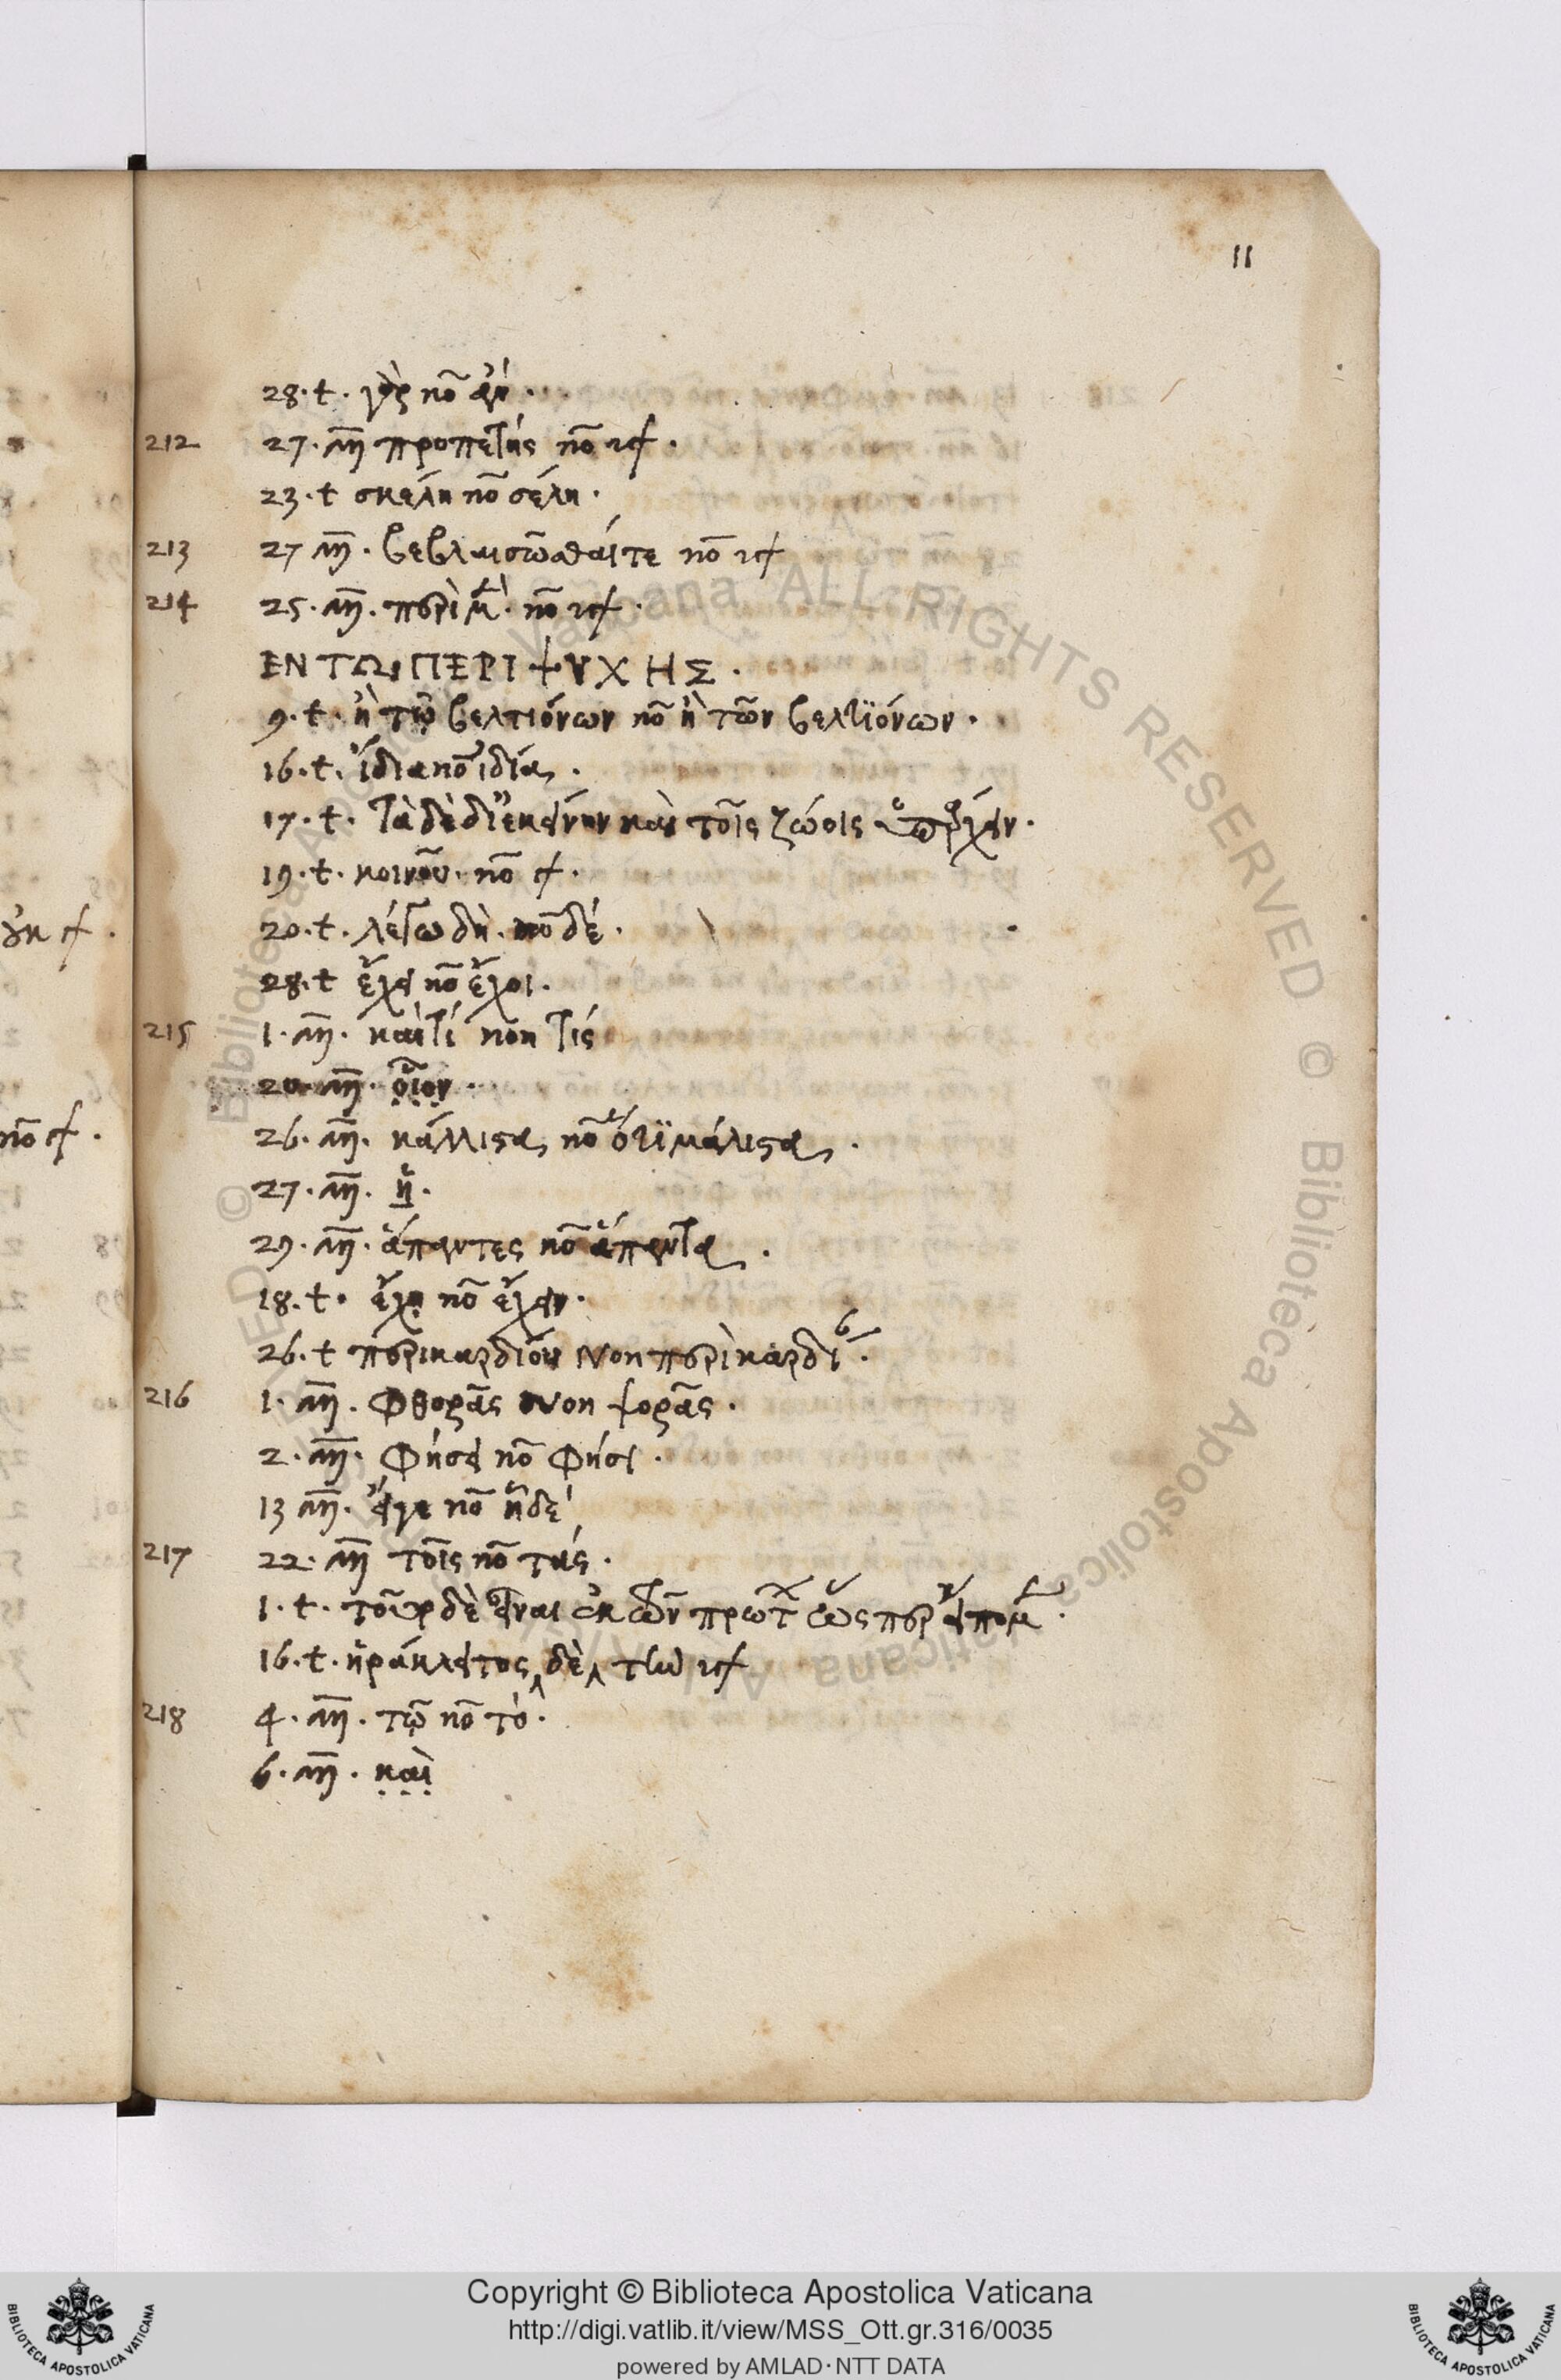 11
28. t. γὰρ νο̄ ἀεί.
212 27. m̄ προπετής νο̄ ſ.
23. t σκέλη νο̄ σέλη.
213 27 m̄. νο̄ ſ
214 25. m̄. περὶ μ̀. νο̄ ſ.
ΕΝ ΤΩι ΠΕΡΙ ΨΥΧΗΣ.
9. t. ἢ τῷ βελτιόνων νο̄ ἢ τῶν βελτϊόνων.
16. t. ἴδια νο̄ ἰδία.
17. t. τὰ δὲ δι' ἐκείνην καὶ τοῖς ζώοις ὑπάρχειν.
19. t. κοινοῦ. νο̄ ſ.
20. t. λέγω δὴ. νο̄ δέ.
28. t ἔχει νο̄ ἔχοι.
215 1. m̄. καὶ τί non τίς
20 m̄. οἷον.
26. m̄. κάλλιστα, νο̄ ὅτϊ μάλιστα.
27. m̄. ἢ.
29. m̄. ἅπαντες νο̄ ἅπαντα.
18. t. ἔχῃ νο̄ ἔχειν.
26. t περικαρδίου non περὶ καρδί.
216 1. m̄. Φθορᾶς non φορᾶς.
2. m̄. Φήσει νο̄ Φησι.
13 m̄. εἴγε νο̄ ἡ δέ
217 22. m̄ τοῖς νο̄ τάς.
1. t. τοῦρ δὲ εἶναι ἐκ ὧν πρώτ ὥσπερ εἴπομ.
16. t. ἡράκλειτος δὲ τὴν ſ
218 4. m̄. τῷ νο̄ τὸ.
6. m̄. καὶ
Copyright © Biblioteca Apostolica Vaticana
http://digi.vatlib.it/view/MSS_Ott.gr.316/0035
powered by AMLAD·NTT DATA